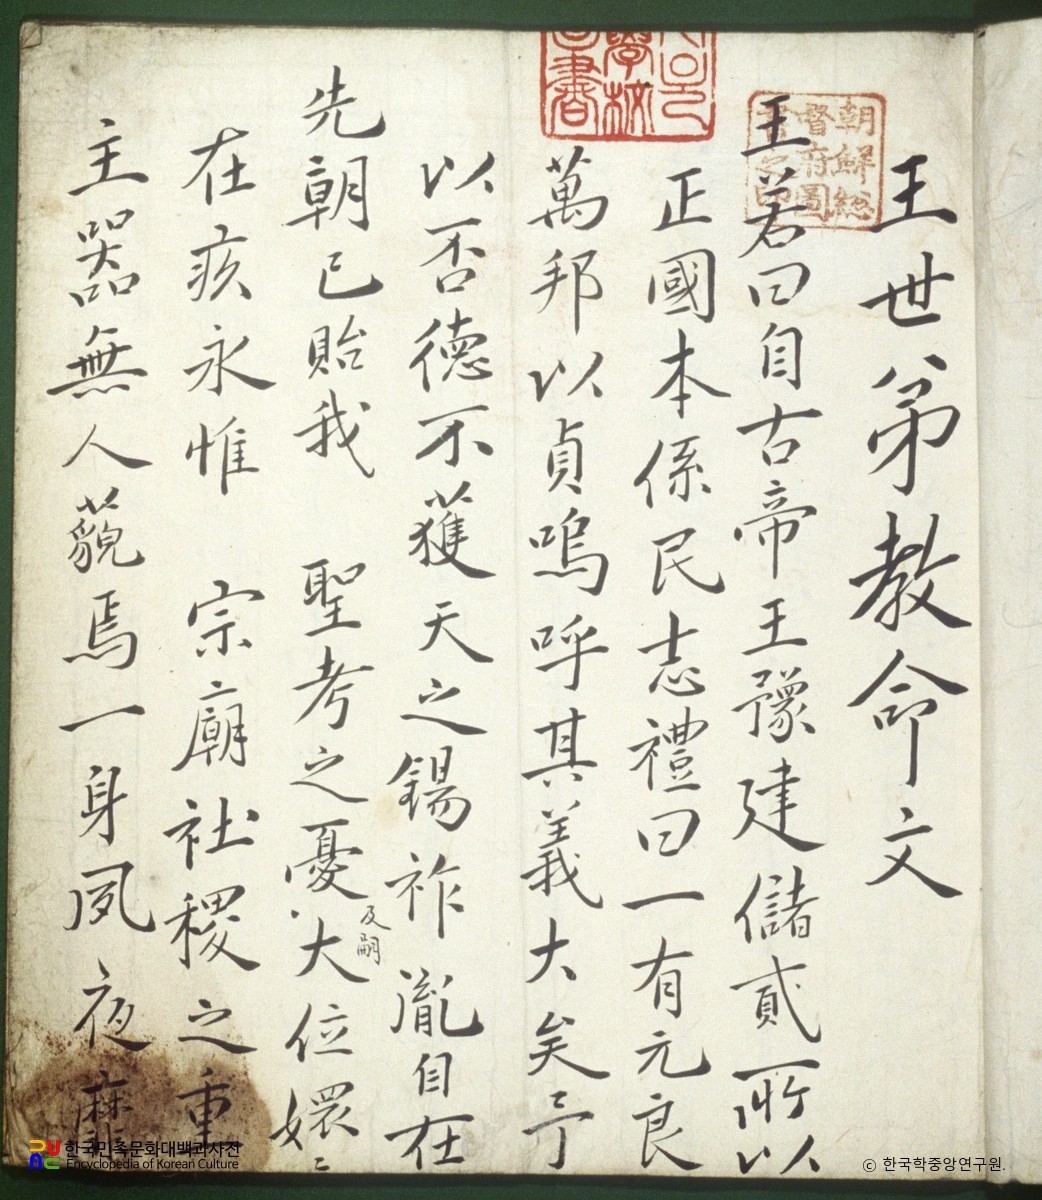 王世弟教命文
王若曰自古帝王豫建儲貳所以
正國本係民志禮曰一有元良
萬邦以貞嗚呼其義大矣予
以否德不獲天之錫祚胤自在
先朝已貽我 聖考之憂及嗣大位嬛〻
在疚永惟 宗廟社稷之重
主器無人藐焉一身夙夜靡
朝鮮総
督府圖
書之印
學校
書
한국민족문화대백과사전
Encyclopedia of Korean Culture
ⓒ 한국학중앙연구원.